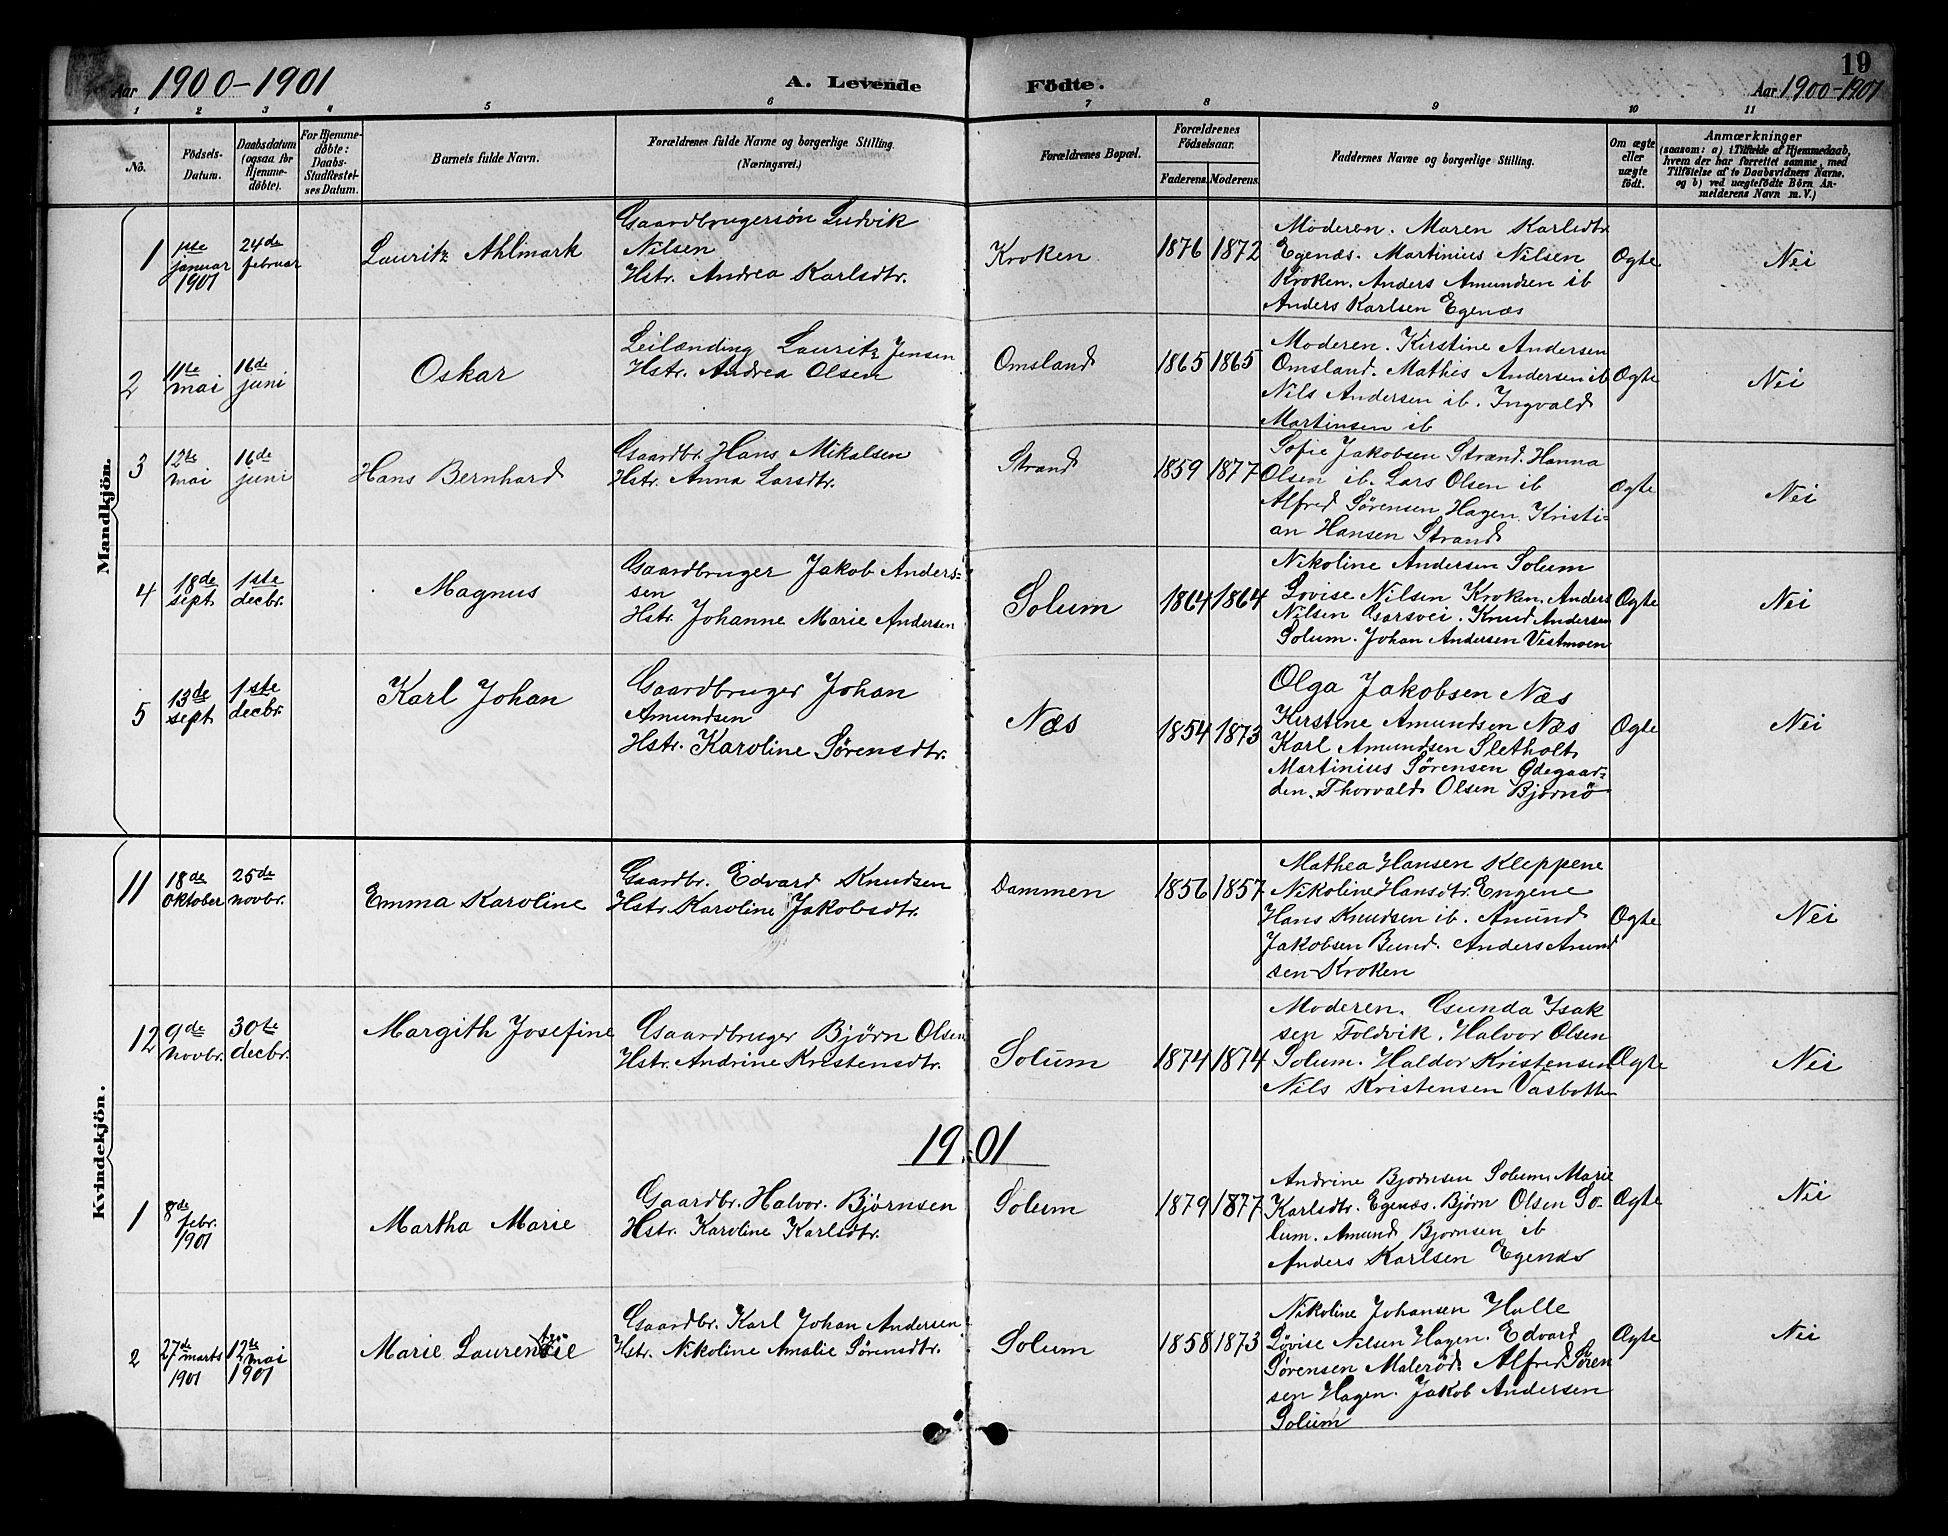 19
Aar 1900-1901
A. Levende Födte.
Aar 1900-1901
1 2 3 4 5 6 7 8 9 10 11
No.
Födsels-
Datum.
Daabsdatum
(ogsaa for
Hjemme-
döbte).
For Hjemme-
döbte:
Daabs-
Stadfæstel-
ses Datum.
Barnets fulde Navn.
Forældrenes fulde Navne og borgerlige Stilling.
(Næringsvei.)
Forældrenes Bopæl.
Forældrenes
Födselsaar.
Faderens. Moderens.
Faddernes Navne og borgerlige Stilling.
Om ægte
eller
uægte
födt.
Anmærkninger
(saasom: a) i Tilfælde af Hjemmedaab,
hvem der har forrettet samme, med
Tilföielse af to Daabsvidners Navne.
og b) ved uægtefödte Börn An-
melderens Navn m. V.)
Mandkjön.
1
1ste
januar
1901
24de
februar
Lauritz Ahlmark
Gaardbrugersøn Ludvik
Nilsen
Hstr. Andrea Karlsdtr.
Kroken
1876 1872
Moderen. Maren Karlsdtr.
Egenæs. Martinius Nilsen
Kroken. Anders Amundsen ib
Anders Karlsen Egenæs
Ægte
Nei
2
11te
mai
16de
juni
Oskar
Leilænding Lauritz Jensen
Hstr. Andrea Olsen
Omsland
1865 1865
Moderen. Kirstine Andersen
Omsland. Mathis Andersen ib
Nils Andersen ib. Ingvald
Martinsen ib
Ægte
Nei
3
12te
mai
16de
juni
Hans Bernhard
Gaardbr. Hans Mikalsen
Hstr. Anna Larsdtr.
Strand
1859 1877
Sofie Jakobsen Strand. Hanna
Olsen ib. Lars Olsen ib
Alfred Sørensen Hagen. Kristi-
an Hansen Strand
Ægte
Nei
4
18de
sept
1ste
decbr.
Magnus
Gaardbruger Jakob Anders-
sen
Hstr. Johanne Marie Andersen
Solum
1864 1864
Nikoline Andersen Solum
Lovise Nilsen Kroken. Anders
Nilsen Garsvei. Knud Andersen
Solum. Johan Andersen Vestmoen
Ægte
Nei
5
13de
sept
1ste
decbr.
Karl Johan
Gaardbruger Johan
Amundsen
Hstr. Karoline Sørensdtr.
Næs
1854 1873
Olga Jakobsen Næs
Kirstine Amundsen Næs
Karl Amundsen Sletholt
Martinius Sørensen Ødegaar-
den. Thorvald Olsen Bjørnø
Ægte
Nei
Kvindekjön.
11
18de
oktober
25de
novbr.
Emma Karoline
Gaardbr. Edvard Knudsen
Hstr. Karoline Jakobsdtr.
Dammen
1856 1857
Mathea Hansen Kleppene
Nikoline Hansdtr. Engene
Hans Knudsen ib. Amund
Jakobsen Bund. Anders Amund
sen Kroken
Ægte
Nei
12
9de
novbr.
30te
decbr.
Margith Josefine
Gaardbruger Bjørn Olsen
Hstr. Andrine Kristensdtr.
Solum
1874 1874
Moderen. Gunda Isak
sen Foldvik. Halvor Olsen
Solum. Haldor Kristensen
Nils Kristensen Vasbotten
Ægte
Nei
1901
1
8de
febr.
1901
Martha Marie
Gaardbr. Halvor Bjørnsen
Hstr. Karoline Karlsdtr.
Solum
1879 1877
Andrine Bjørnsen Solum. Marie
Karlsdtr. Egenæs. Bjørn Olsen So-
lum. Amund Bjørnsen ib
Anders Karlsen Egenæs
Ægte
Nei
2
27de
marts
1901
12te
mai
1901
Marie
Gaardbr. Karl Johan Andersen
Hstr. Nikoline Amalie Sørensdtr.
Solum
1858 1873
Nikoline Johansen Holle
Lovise Nilsen Hagen. Edvard
Sørensen Malerød. Alfred Søren
sen Hagen. Jakob Andersen
Solum
Ægte
Nei